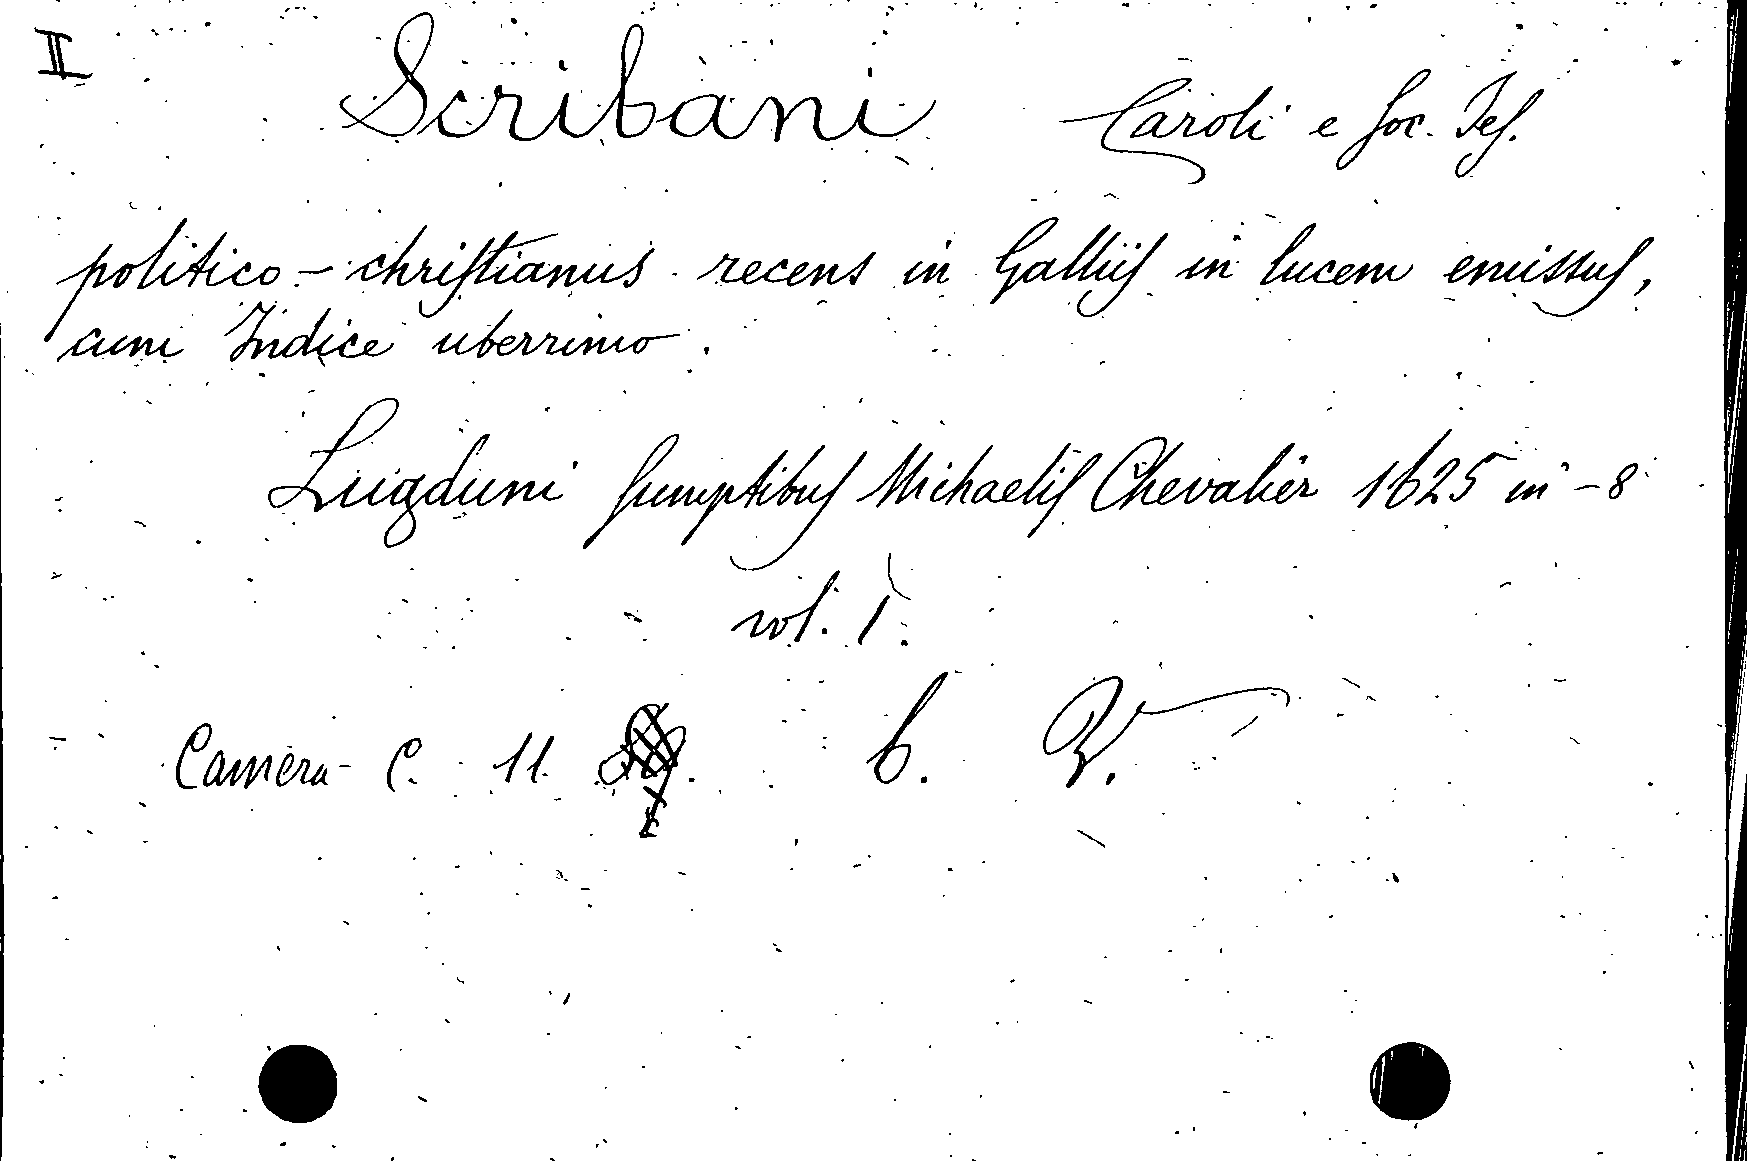 II
Scribani Caroli e Soc. Jes.
politico-christianus recens in Galliis in lucem emissus,
cum Indice uberrimo.
Lugduni sumptibus Michaelis Chevalier 1625 in-8
vol. 1.
Camera C. 11. b.